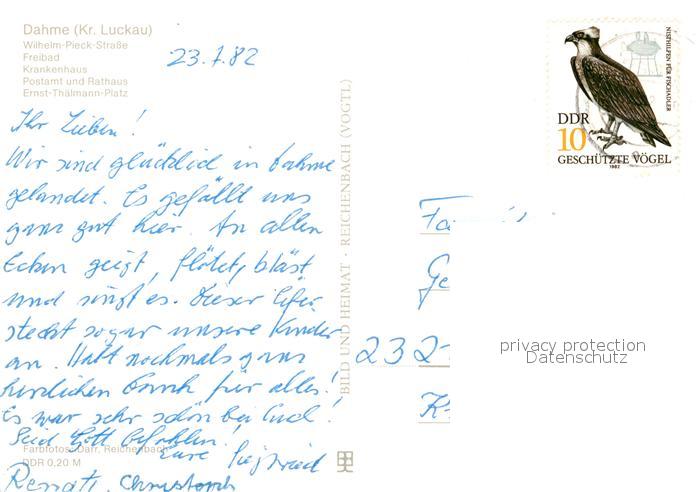 Dahme (Kr. Luckau)
Wilhelm-Pieck-Straße
Freibad
Krankenhaus
Postamt und Rathaus
Ernst-Thälmann-Platz
23.7.82
Ihr Lieben!
Wir sind glücklich in Dahme
gelandet. Es gefällt uns
ganz gut hier. An allen
Ecken geigt, flötet, bläst
und singt es. Dieser Eifer
steckt sogar unsere Kinder
an. Habt nochmals ganz
herzlichen Dank für alles!
Es war sehr schön bei Euch!
Seid Gott befohlen!
Eure Siegfried
Renate, Christoph
Farbfotos: Darr, Reichenbach
DDR 0,20 M
BILD UND HEIMAT · REICHENBACH (VOGTL)
NISTHILFEN FÜR FISCHADLER
DDR
10
GESCHÜTZTE VÖGEL
1982
232
privacy protection
Datenschutz